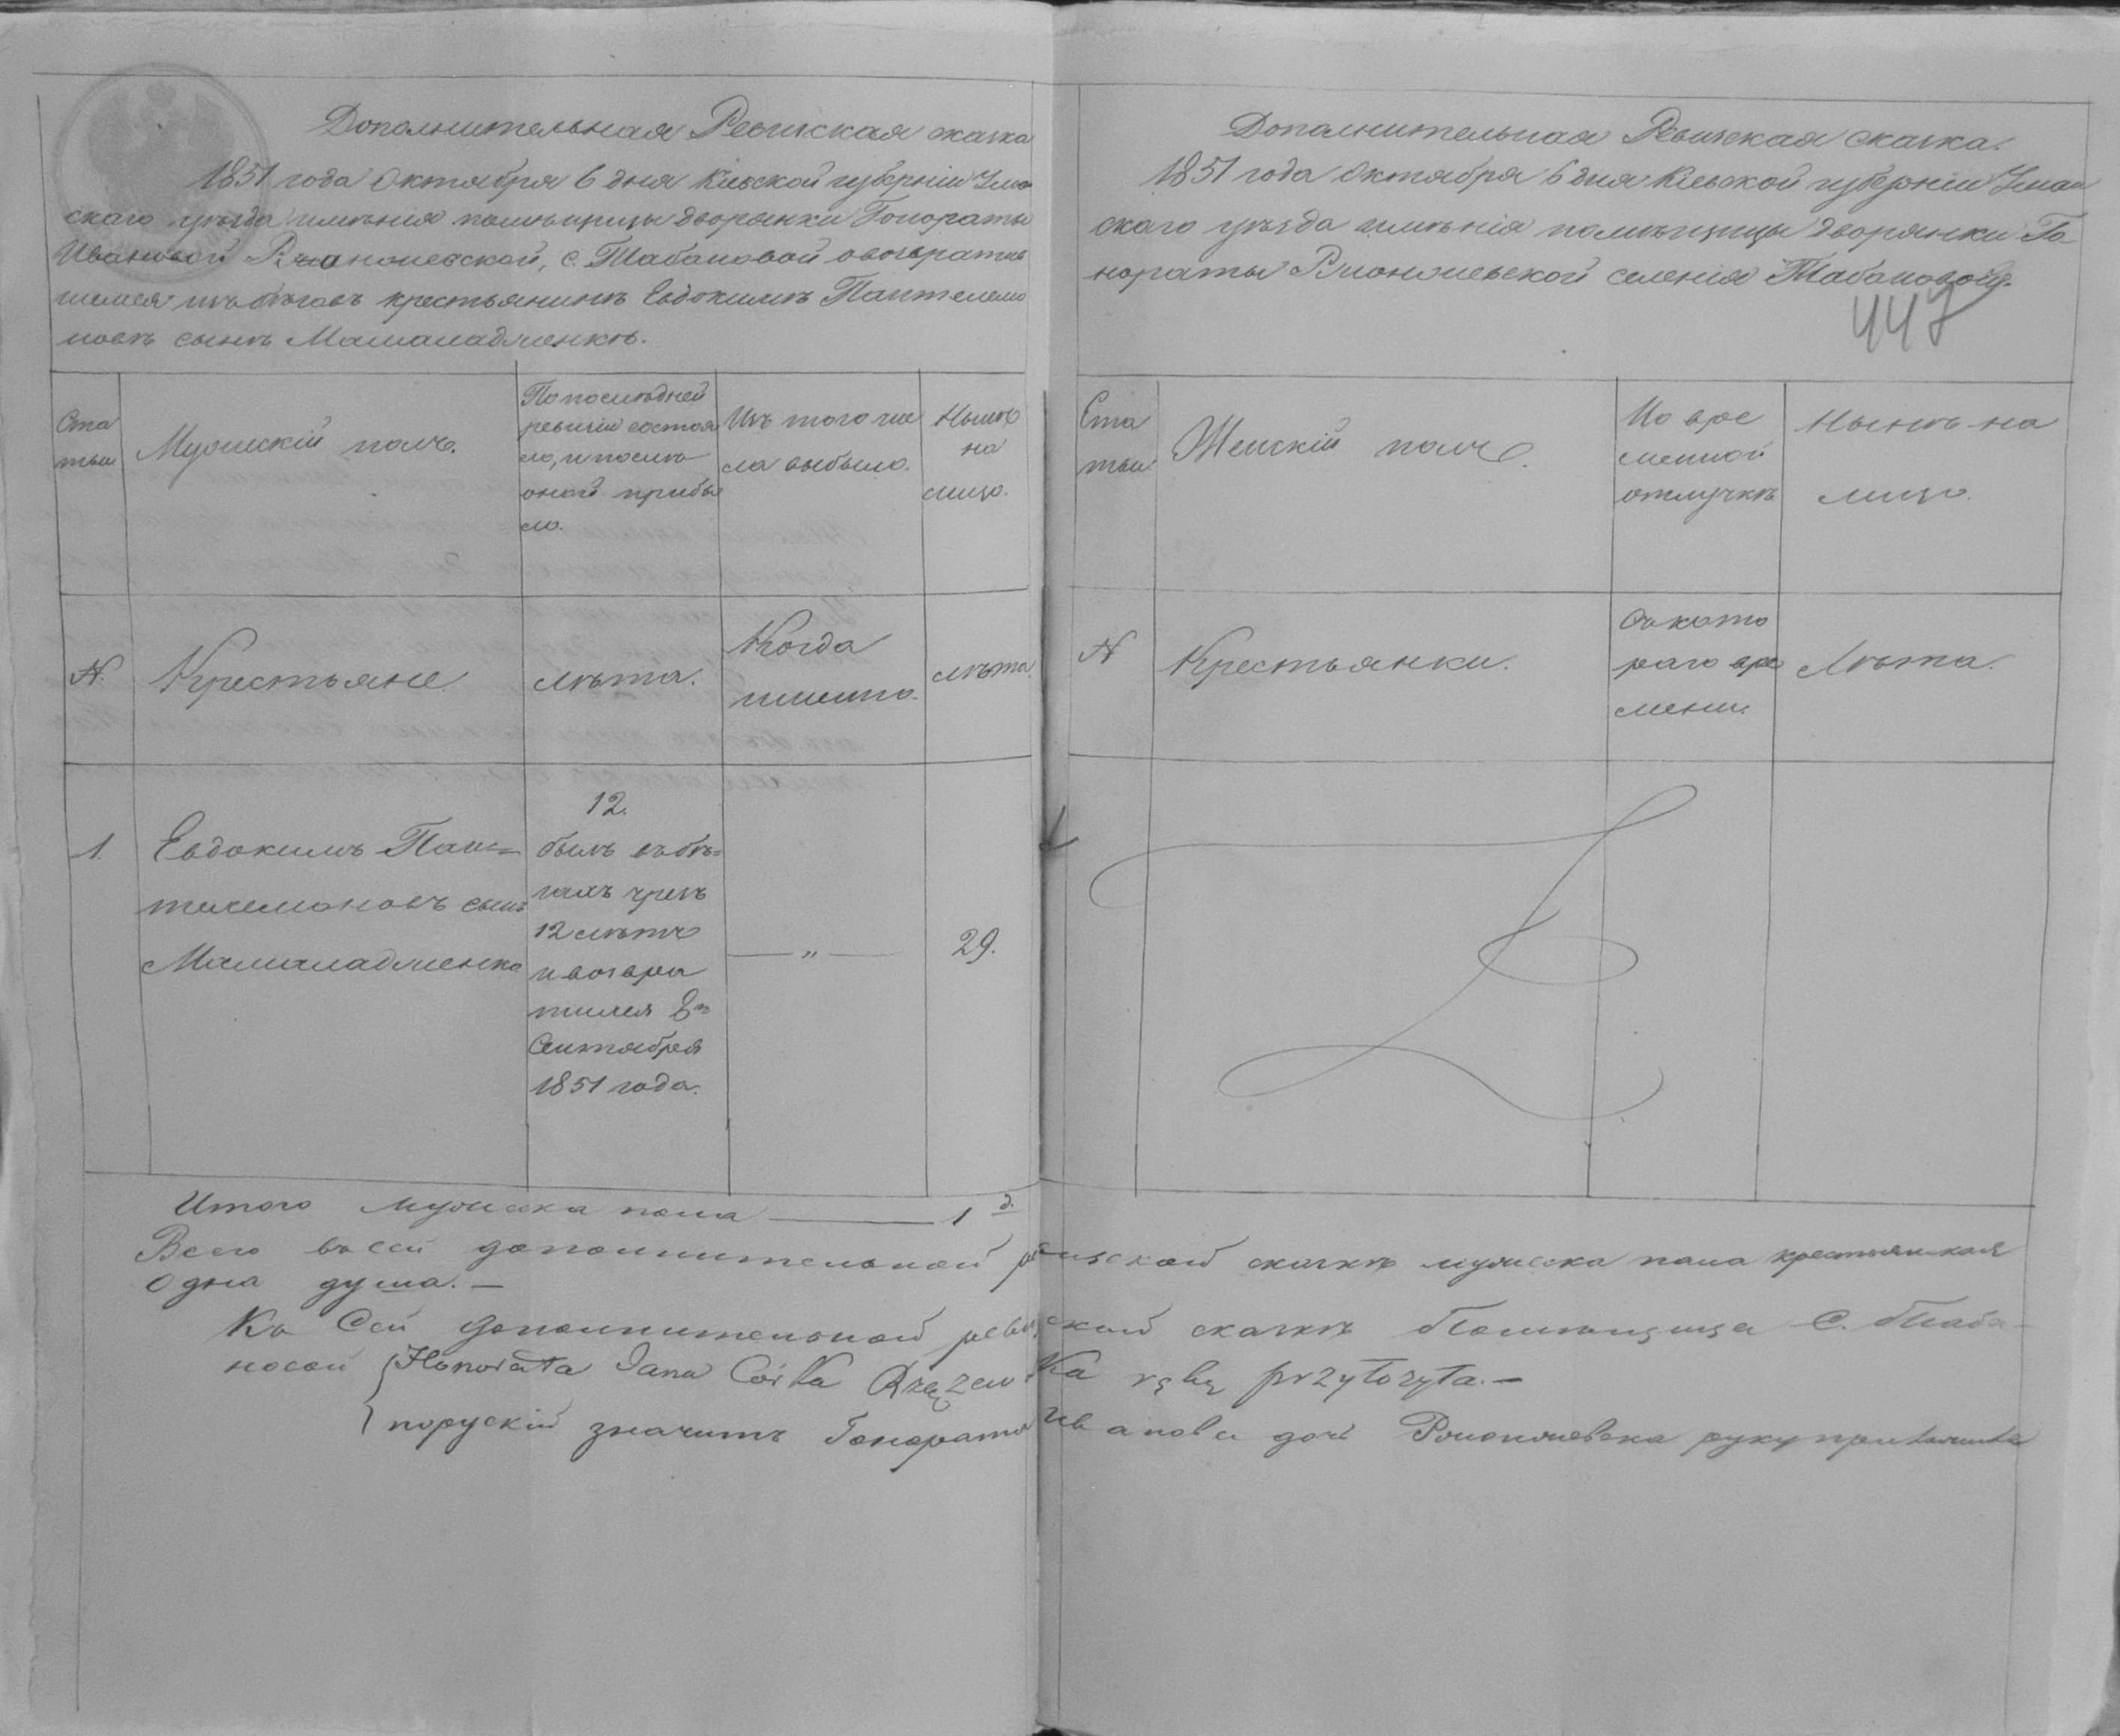 Дополнительная Ревизская сказка
1851 года Октября 6 дня Кіевской губерніи Уман
скаго уѣзда имѣнія помѣщицы дворянки Гонораты
Ивановой с. Табановой о возвратив
шемся изъ бѣговъ крестьянинѣ Евдокимѣ Пантелемо
новѣ сынѣ
Ста
тьи
Мужескій полъ.
По послѣдней
ревизіи состоя
ло, и послѣ
оной прибы
ло.
Изъ того чис
ла выбыло.
Нынѣ
на
лицо.
N.
Крестьяне
лѣта.
Когда
имѣнно.
лѣта
1.
Евдокимъ Пан=
телемоновъ сынъ
12.
былъ въ бѣ=
гахъ чрезъ
12 лѣтъ
и возвра
тился
Сентября
1851 года.
— „ —
29.
Итого мужеска пола — 1 д.
Дополнительная Ревизская сказка.
1851 года Октября 6 дня Кіевской губерніи Уман
скаго уѣзда имѣнія помѣщицы дворянки Го
нораты селенія Табановой.
447
Ста
тьи
Женскій полъ.
Во вре
менной
отлучкѣ
Нынѣ на
лицо.
N
Крестьянки.
Съ кото
раго вре
мени.
Лѣта.
Всего въ сей дополнительной ревизской сказкѣ мужеска пола крестьянская
Одна душа. —
Къ Сей дополнительной ревизской сказкѣ Помѣщица С. Таба-
новой Honorata Jana Córka rękę przyłożyła. —
поруский значитъ Гонората Иванова дочь руку приложила